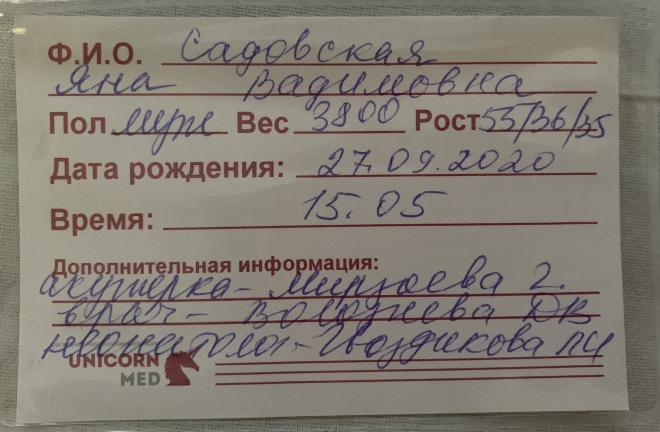 Ф.И.О. Садовская
Яна Вадимовна
Пол муж Вес 3800 Рост 55/36/35
Дата рождения: 27.09.2020
Время: 15.05
Дополнительная информация:
акушерка - Мирзоева Г.
врач - ДВ
неонатолог - Гвоздикова
UNICORN
MED